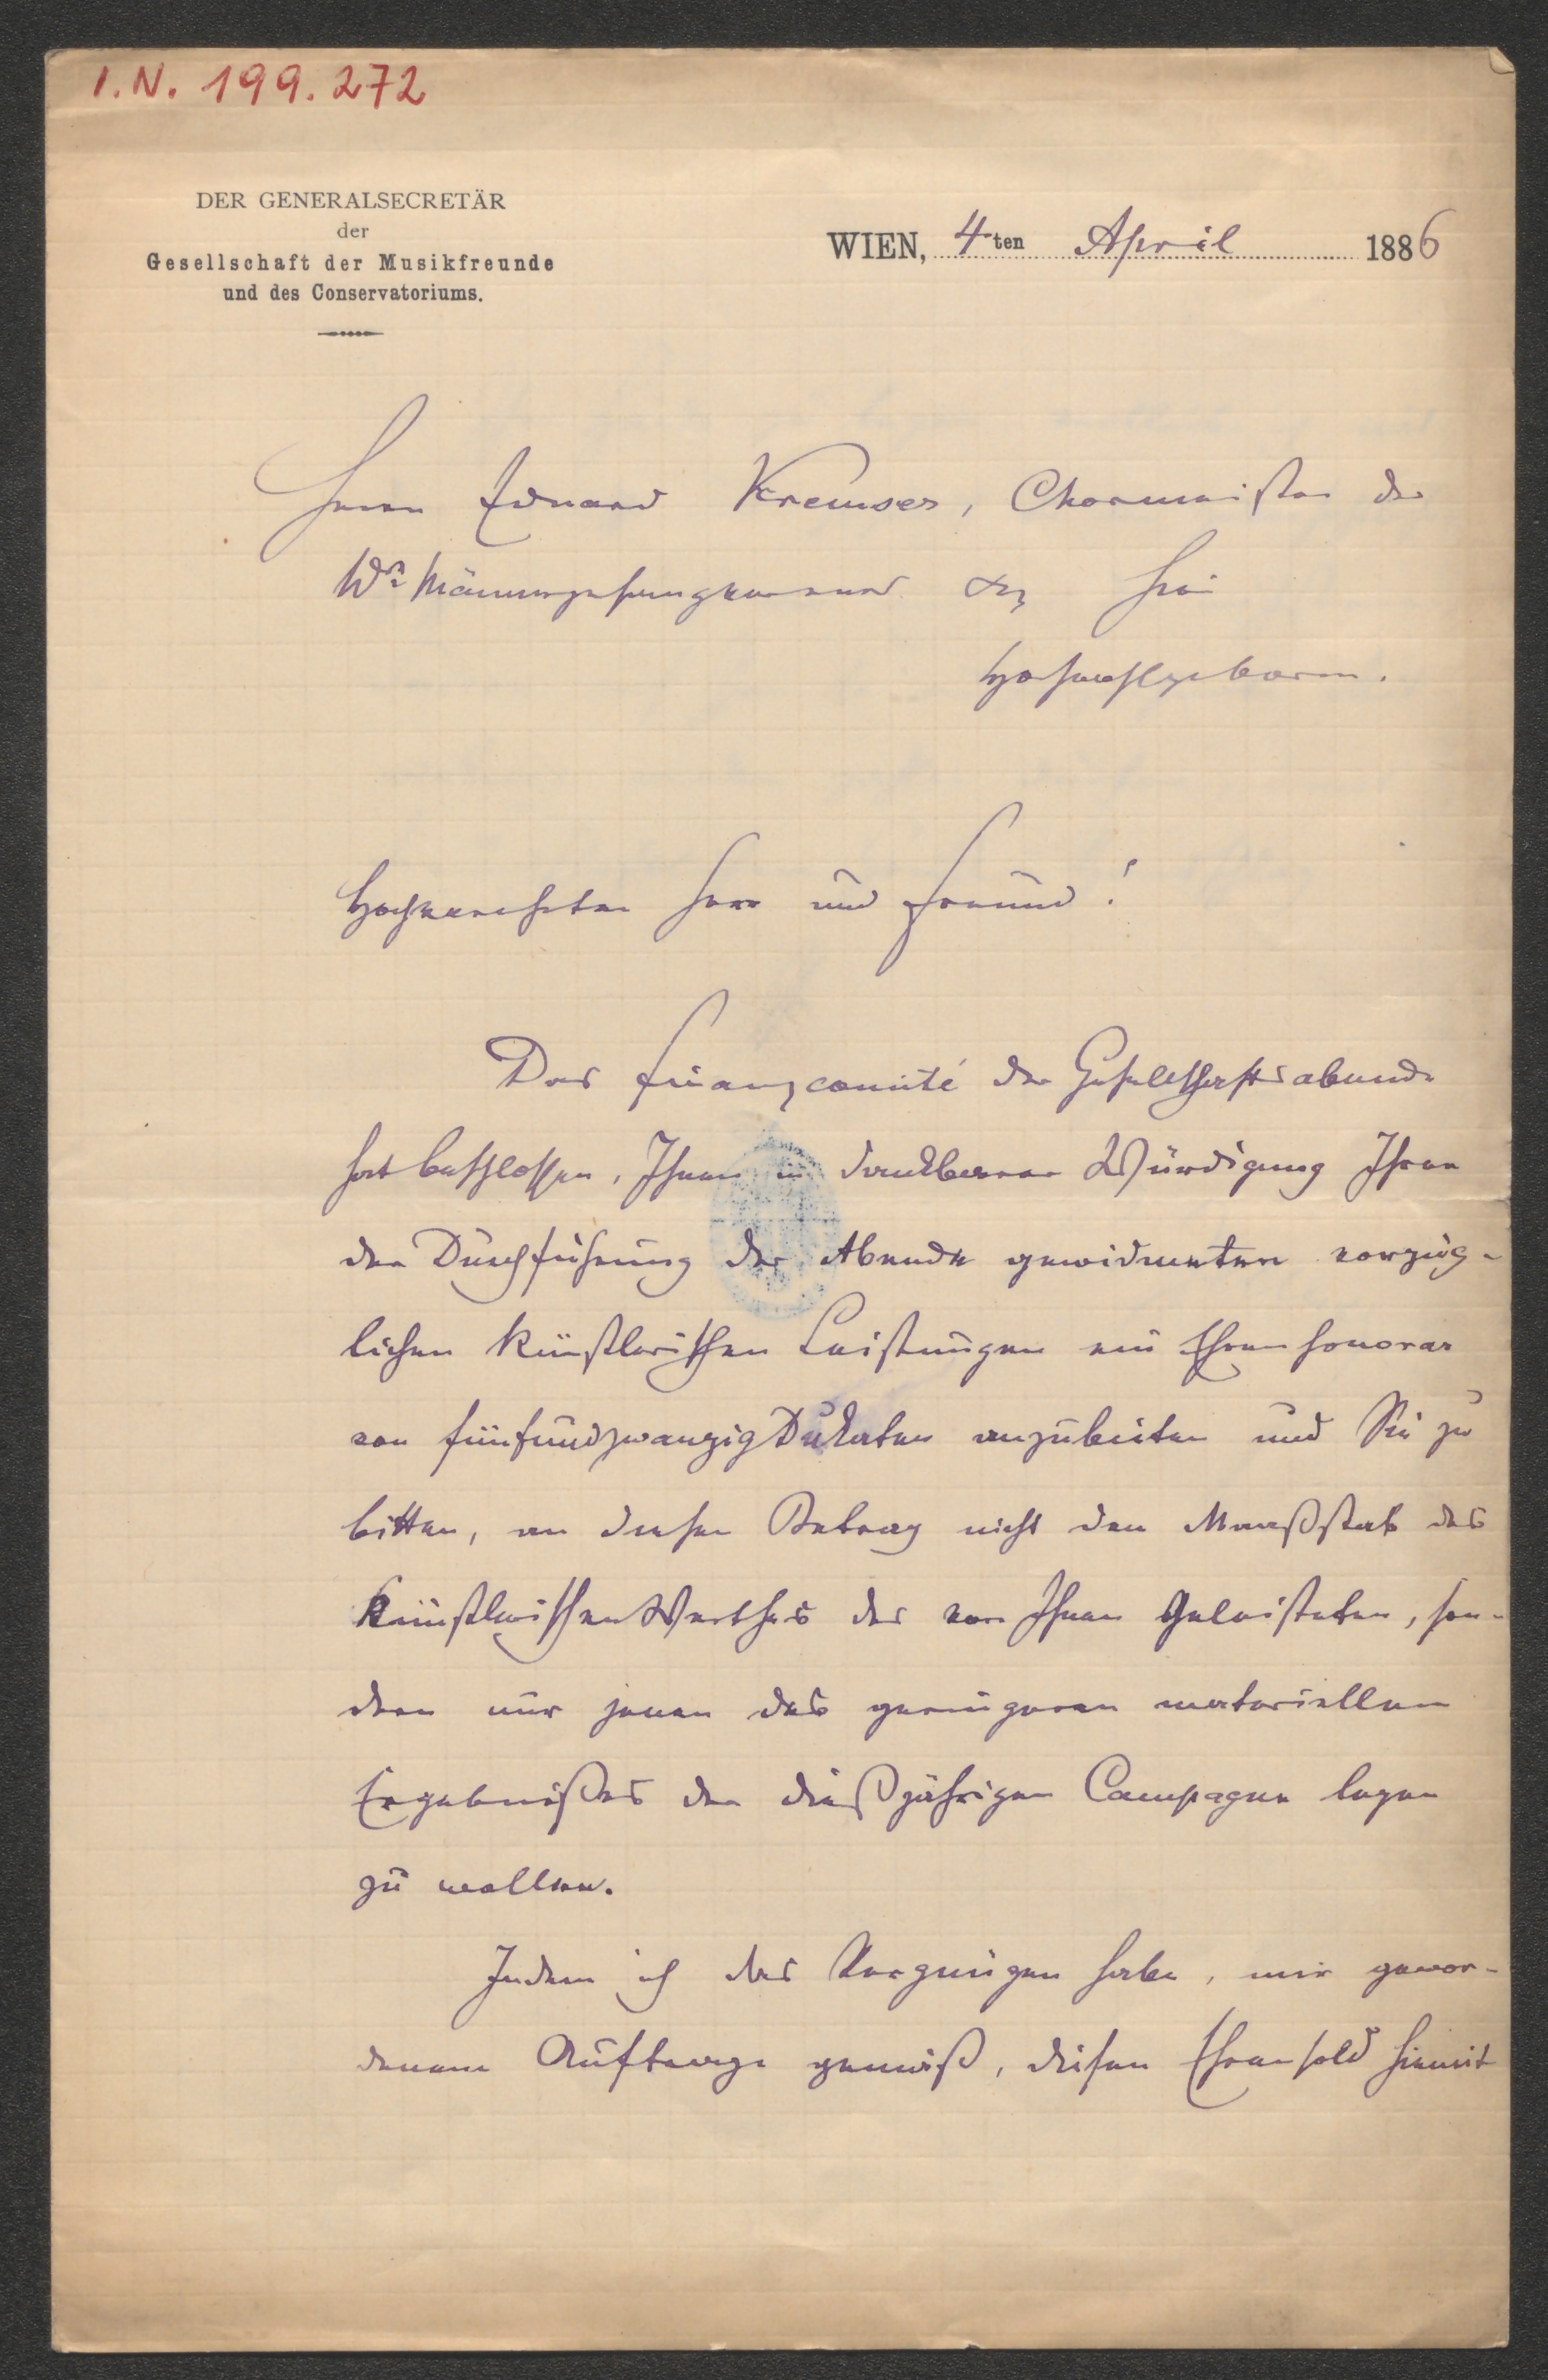 I.N. 199.272
DER GENERALSECRETÄR
der
Gesellschaft der Musikfreunde
und des Conservatoriums.
WIEN, 4ten April 1886
Herrn Eduard Kremser, Chormeister des
Wr Männergesangverein
Hochwohlgeboren.
Hochverehrter Herr und Freund!
Das Finanzcomité der Gesellschaftsabende
hat beschlossen, Ihnen in dankbarer Würdigung Ihrer
der Durchführung der Abende gewidmeten vorzüg-
lichen künstlerischen Leistungen ein Ehrenhonorar
von fünfundzwanzig Dukaten anzubieten und Sie zu
bitten, an diesen Betrag nicht den Maaßstab des
künstlerischen Werthes des von Ihnen Geleisteten, son-
dern nur jenen des geringeren materiellen
Ergebnißes der dießjährigen Campagne legen
zu wollen.
Indem ich das Vergnügen habe, mir gewor-
denem Auftrage gemäß, diesen Ehrensold hiemit